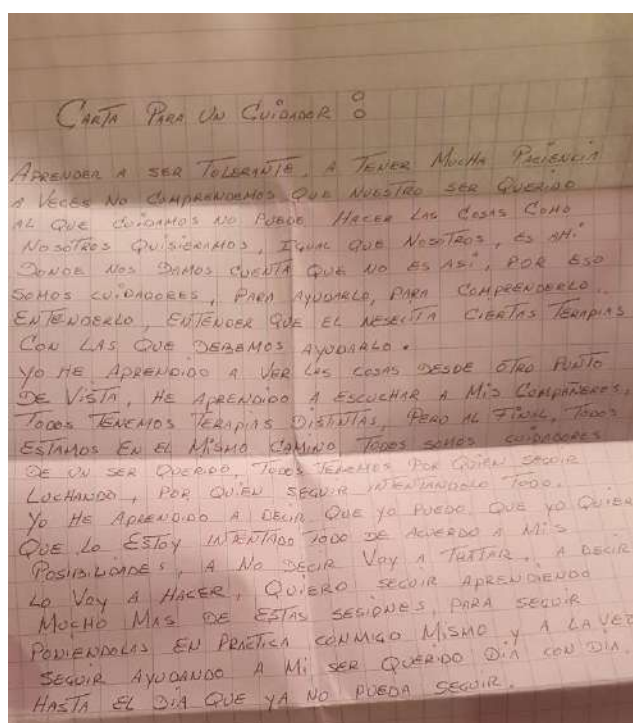 CARTA PARA UN CUIDADOR :
APRENDER A SER TOLERANTE, A TENER MUCHA PACIENCIA
A VECES NO COMPRENDEMOS QUE NUESTRO SER QUERIDO
AL QUE CUIDAMOS NO PUEDE HACER LAS COSAS COMO
NOSOTROS QUISIERAMOS, IGUAL QUE NOSOTROS, ES AHI
DONDE NOS DAMOS CUENTA QUE NO ES ASI, POR ESO
SOMOS CUIDADORES, PARA AYUDARLO, PARA COMPRENDERLO..
ENTENDERLO, ENTENDER QUE EL NESECITA CIERTAS TERAPIAS
CON LAS QUE DEBEMOS AYUDARLO.
YO HE APRENDIDO A VER LAS COSAS DESDE OTRO PUNTO
DE VISTA, HE APRENDIDO A ESCUCHAR A MIS COMPAÑEROS,
TODOS TENEMOS TERAPIAS DISTINTAS, PERO AL FINAL, TODOS
ESTAMOS EN EL MISMO CAMINO, TODOS SOMOS CUIDADORES
DE UN SER QUERIDO, TODOS TENEMOS POR QUIEN SEGUIR
LUCHANDO, POR QUIEN SEGUIR INTENTANDOLO TODO.
YO HE APRENDIDO A DECIR QUE YO PUEDO, QUE YO QUIER
QUE LO ESTOY INTENTADO TODO DE ACUERDO A MIS
POSIBILIDADES, A NO DECIR VOY A TRATAR, A DECIR
LO VOY A HACER, QUIERO SEGUIR APRENDIENDO
MUCHO MAS DE ESTAS SESIONES, PARA SEGUIR
PONIENDOLAS EN PRACTICA CONMIGO MISMO Y A LA VEZ
SEGUIR AYUDANDO A MI SER QUERIDO DIA CON DIA.
HASTA EL DIA QUE YA NO PUEDA SEGUIR.